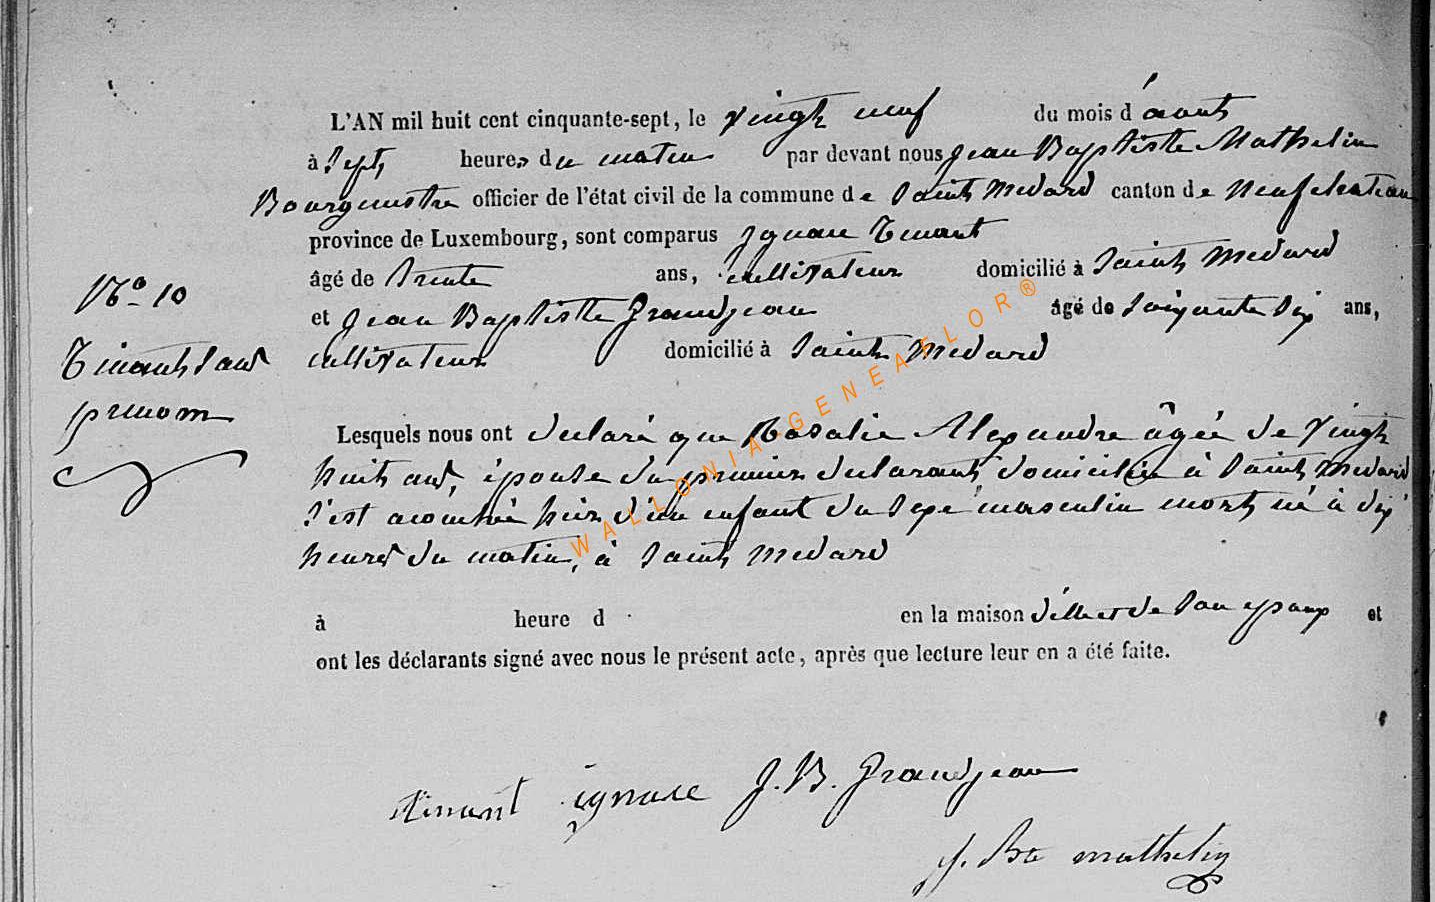 L'AN mil huit cent cinquante-sept, le vingt neuf du mois d'aout
à sept heures du matin par devant nous Jean Baptiste Mathelin
Bourgmestre officier de l'état civil de la commune de Saint Medard canton de Neufchateau
province de Luxembourg, sont comparus Ignace Tinant
âgé de trente ans, cultivateur domicilié à Saint Medard
et Jean Baptiste Grandjean âgé de soixante dix ans,
cultivateur domicilié à Saint Medard
N° 10
Tinant sans
prenom
Lesquels nous ont declaré que Rosalie Alexandre âgée de vingt
huit ans, épouse du premier declarant, domiciliée à Saint Medard
s'est acouchée hier d'un enfant du sexe masculin mort né à dix
heures du matin, à Saint Medard
à heure d en la maison d'elle et de son epoux et
ont les déclarants signé avec nous le présent acte, après que lecture leur en a été faite.
Tinant ignace J. B. Grandjean
J. Bte mathelin
WALLONIA-GENEAFLOR®